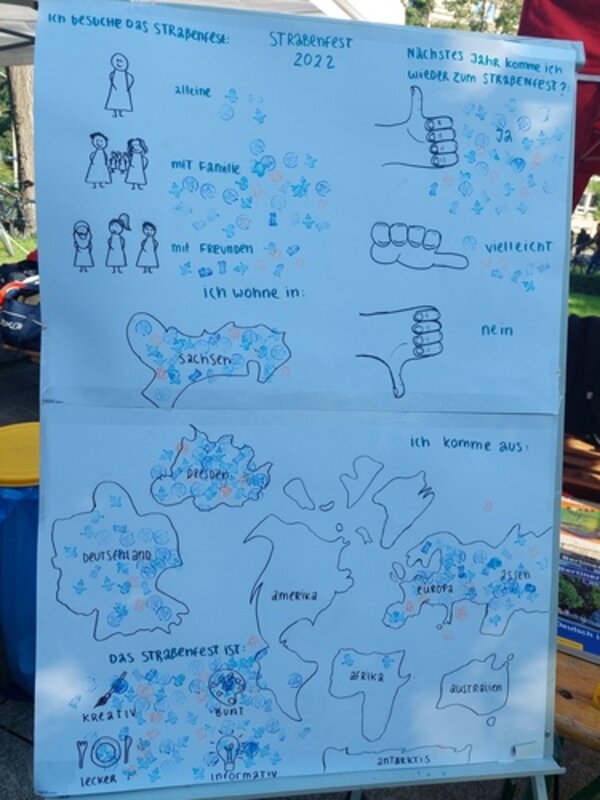 Ich besuche das Straßenfest:
Straßenfest
2022
Nächstes Jahr komme ich
wieder zum Straßenfest?:
alleine
Ja
mit Familie
mit Freunden
vielleicht
ich wohne in:
nein
Sachsen
ich komme aus:
Dresden
Deutschland
amerika
europa
asien
Das Straßenfest ist:
afrika
australien
kreativ
bunt
lecker
informativ
antarktis
Berliner
Deutsch L